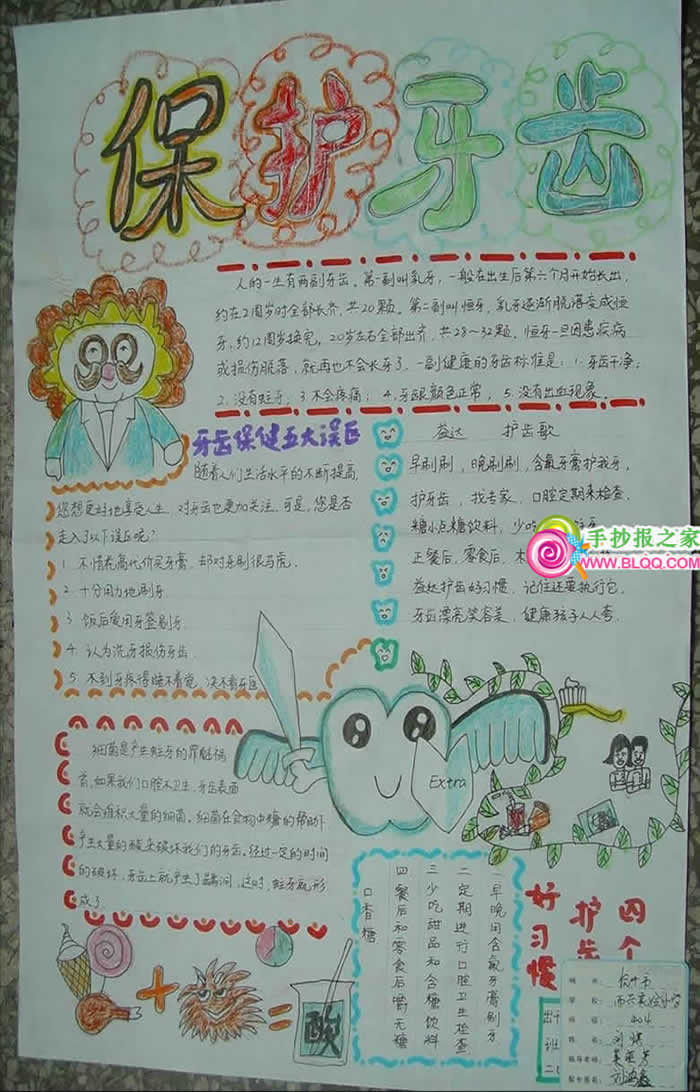 保护牙齿
人的一生有两副牙齿。第一副叫乳牙,一般在出生后第六个月开始长出,
约在2周岁时全部长齐,共20颗。第二副叫恒牙,乳牙逐渐脱落变成恒
牙,约12周岁换完,20岁左右全部出齐,共28~32颗。恒牙一旦因患疾病
或损伤脱落,就再也不会长牙了。一副健康的牙齿标准是:1.牙齿干净;
2.没有蛀牙;3.不会疼痛;4.牙龈颜色正常;5.没有出血现象。
牙齿保健五大误区
随着人们生活水平的不断提高,
您想更好地享受人生,对牙齿也更加关注,可是,您是否
走入了以下误区呢?
1.不惜花高代价买牙膏,却对牙刷很马虎。
2.十分用力地刷牙.
3.饭后爱用牙签剔牙.
4.认为洗牙损伤牙齿.
5.不到牙疼得睡不着觉,决不看牙医
益达 护齿歌
早刷刷,晚刷刷,含氟牙膏护我牙,
护牙齿,找专家,口腔定期来检查.
糖小点糖饮料,少吃
正餐后,零食后,
益达护齿好习惯,记住还要执行它,
牙齿漂亮笑容美,健康孩子人人夸.
手抄报之家
WWW.BLQQ.COM
细菌是产生蛀牙的罪魁祸
首,如果我们口腔不卫生,牙齿表面
就会堆积大量的细菌。细菌在食物中糖的帮助下
产生大量的酸来破坏我们的牙齿。经过一定的时间
的破坏,牙齿上就产生了龋洞,这时,蛀牙就形
成了
Extra
四个
护齿
好习惯
一早晚用含氟牙膏刷牙
二定期进行口腔卫生检查
三少吃甜品和含糖饮料
四餐后和零食后嚼无糖
口香糖
酸
学校:
班级:
404
姓名: